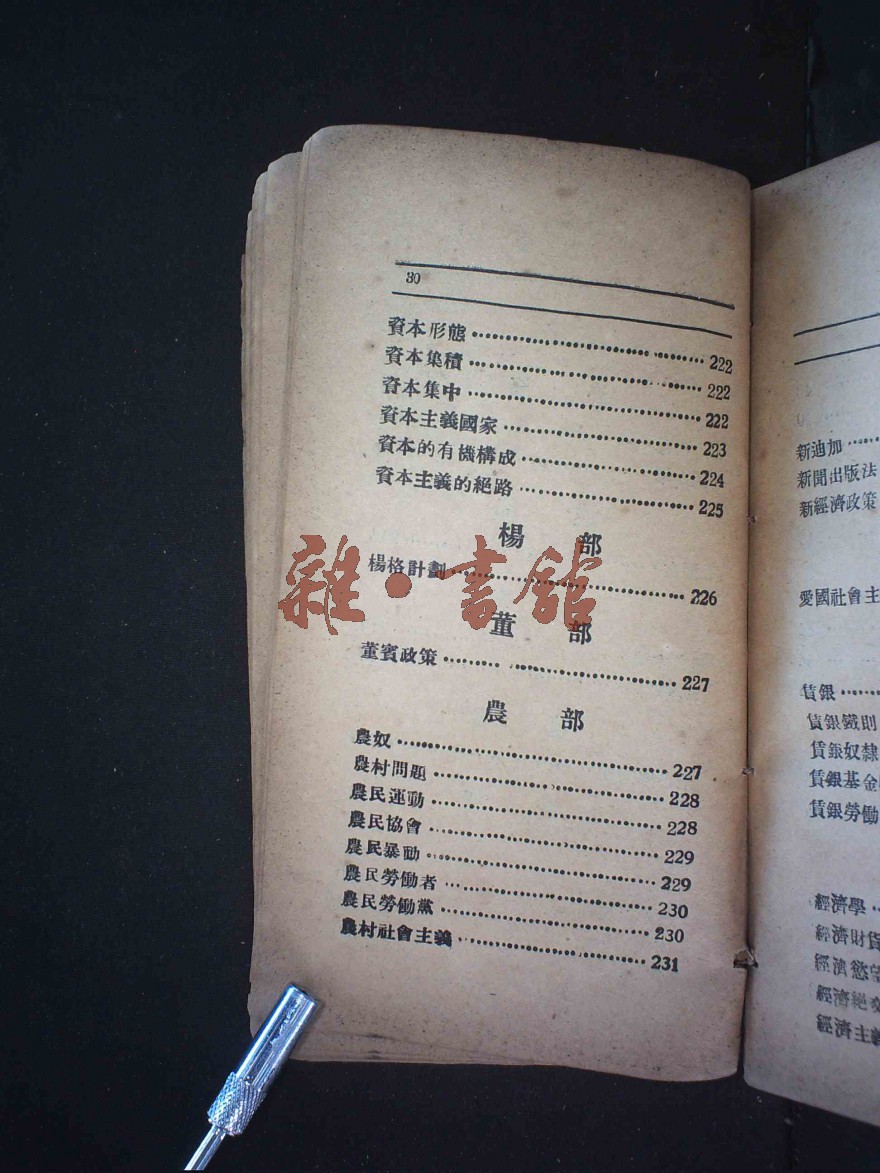 30
資本形態 222
資本集積 222
資本集中 222
資本主義國家 223
資本的有機構成 224
資本主義的絕路 225
楊 部
楊格計劃 226
董 部
董賓政策 227
農 部
農奴 227
農村問題 228
農民運動 228
農民協會 229
農民暴動 229
農民勞働者 230
農民勞働黨 230
農村社會主義 231
雜·書館
新迪加
新聞出版法
新經濟政策
愛國社會主
賃銀
賃銀鐵則
賃銀奴隸
賃銀基金
賃銀勞働
經濟學
經濟財貨
經濟慾
經濟絕交
經濟主義